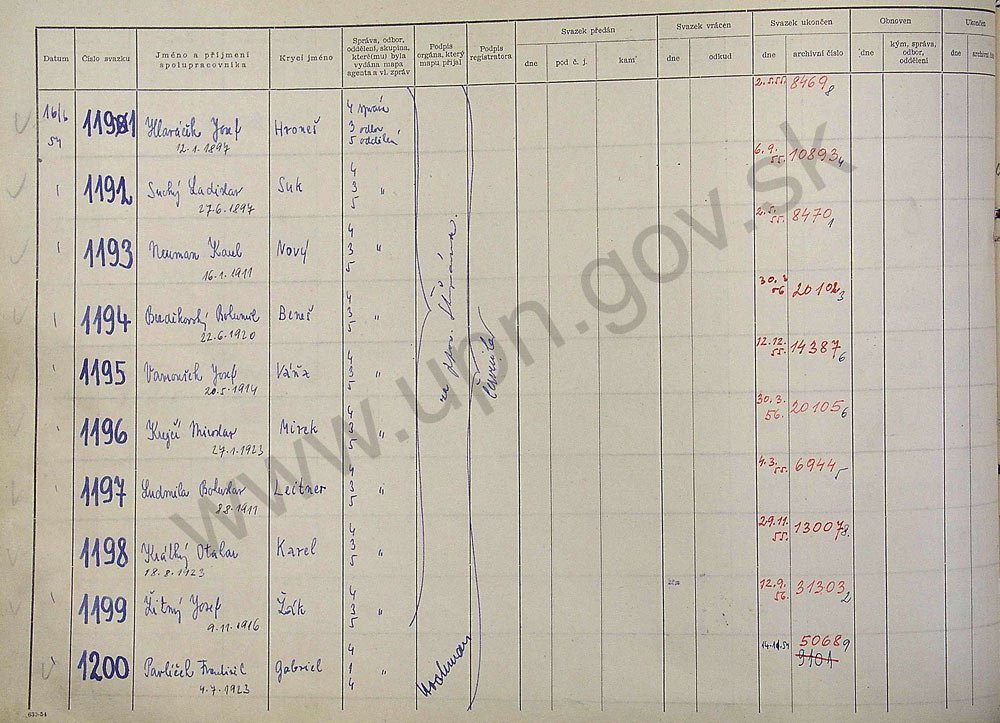 Datum
Číslo svazku
Jméno a příjmení
spolupracovníka
Krycí jméno
Správa, odbor,
oddělení, skupina,
které(mu) byla
vydána mapa
agenta a vl. zpráv
Podpis
orgána, který
mapu přijal
Podpis
registratora
Svazek předán
dne
pod č. j.
kam
Svazek vrácen
dne
odkud
Svazek ukončen
dne
archivní číslo
Obnoven
dne
kým, správa,
odbor,
oddělení
Ukončen
dne
archivní
16/6
54
1191
Hlaváčik Josef
12.1.1897
Hroneš
4 správa
3 odbor
5 oddělení
2.5.55.
8469
8
1192
Suchý Ladislav
27.6.1897
Suk
4
3 "
5
6.9.
55.
10893
4
1193
Neuman Karel
16.1.1911
Nový
4
3 "
5
2.5.
55.
8470
1
1194
Bohumil
22.6.1920
Beneš
4
3 "
5
30.3
56
20102
3
1195
Josef
20.5.1914
Váňa
4
3 "
5
12.12.
55.
14387
6
1196
Miroslav
27.1.1923
Mirek
4
3 "
5
30.3.
56.
20105
6
1197
Ludmila Bohuslav
8.8.1911
Leitner
4
3 "
5
4.3.
55.
6944
5
1198
Krátký Otakar
18.8.1923
Karel
4
3 "
5
29.11.
55.
13007
8.
1199
Žitný Josef
9.11.1916
Žák
4
3 "
5
12.9.
56.
31303
2
1200
Pavlíček František
4.7.1923
Gabriel
4
1 "
4
14.10.54
50689
9101
za npor.
www.upn.gov.sk
633-54